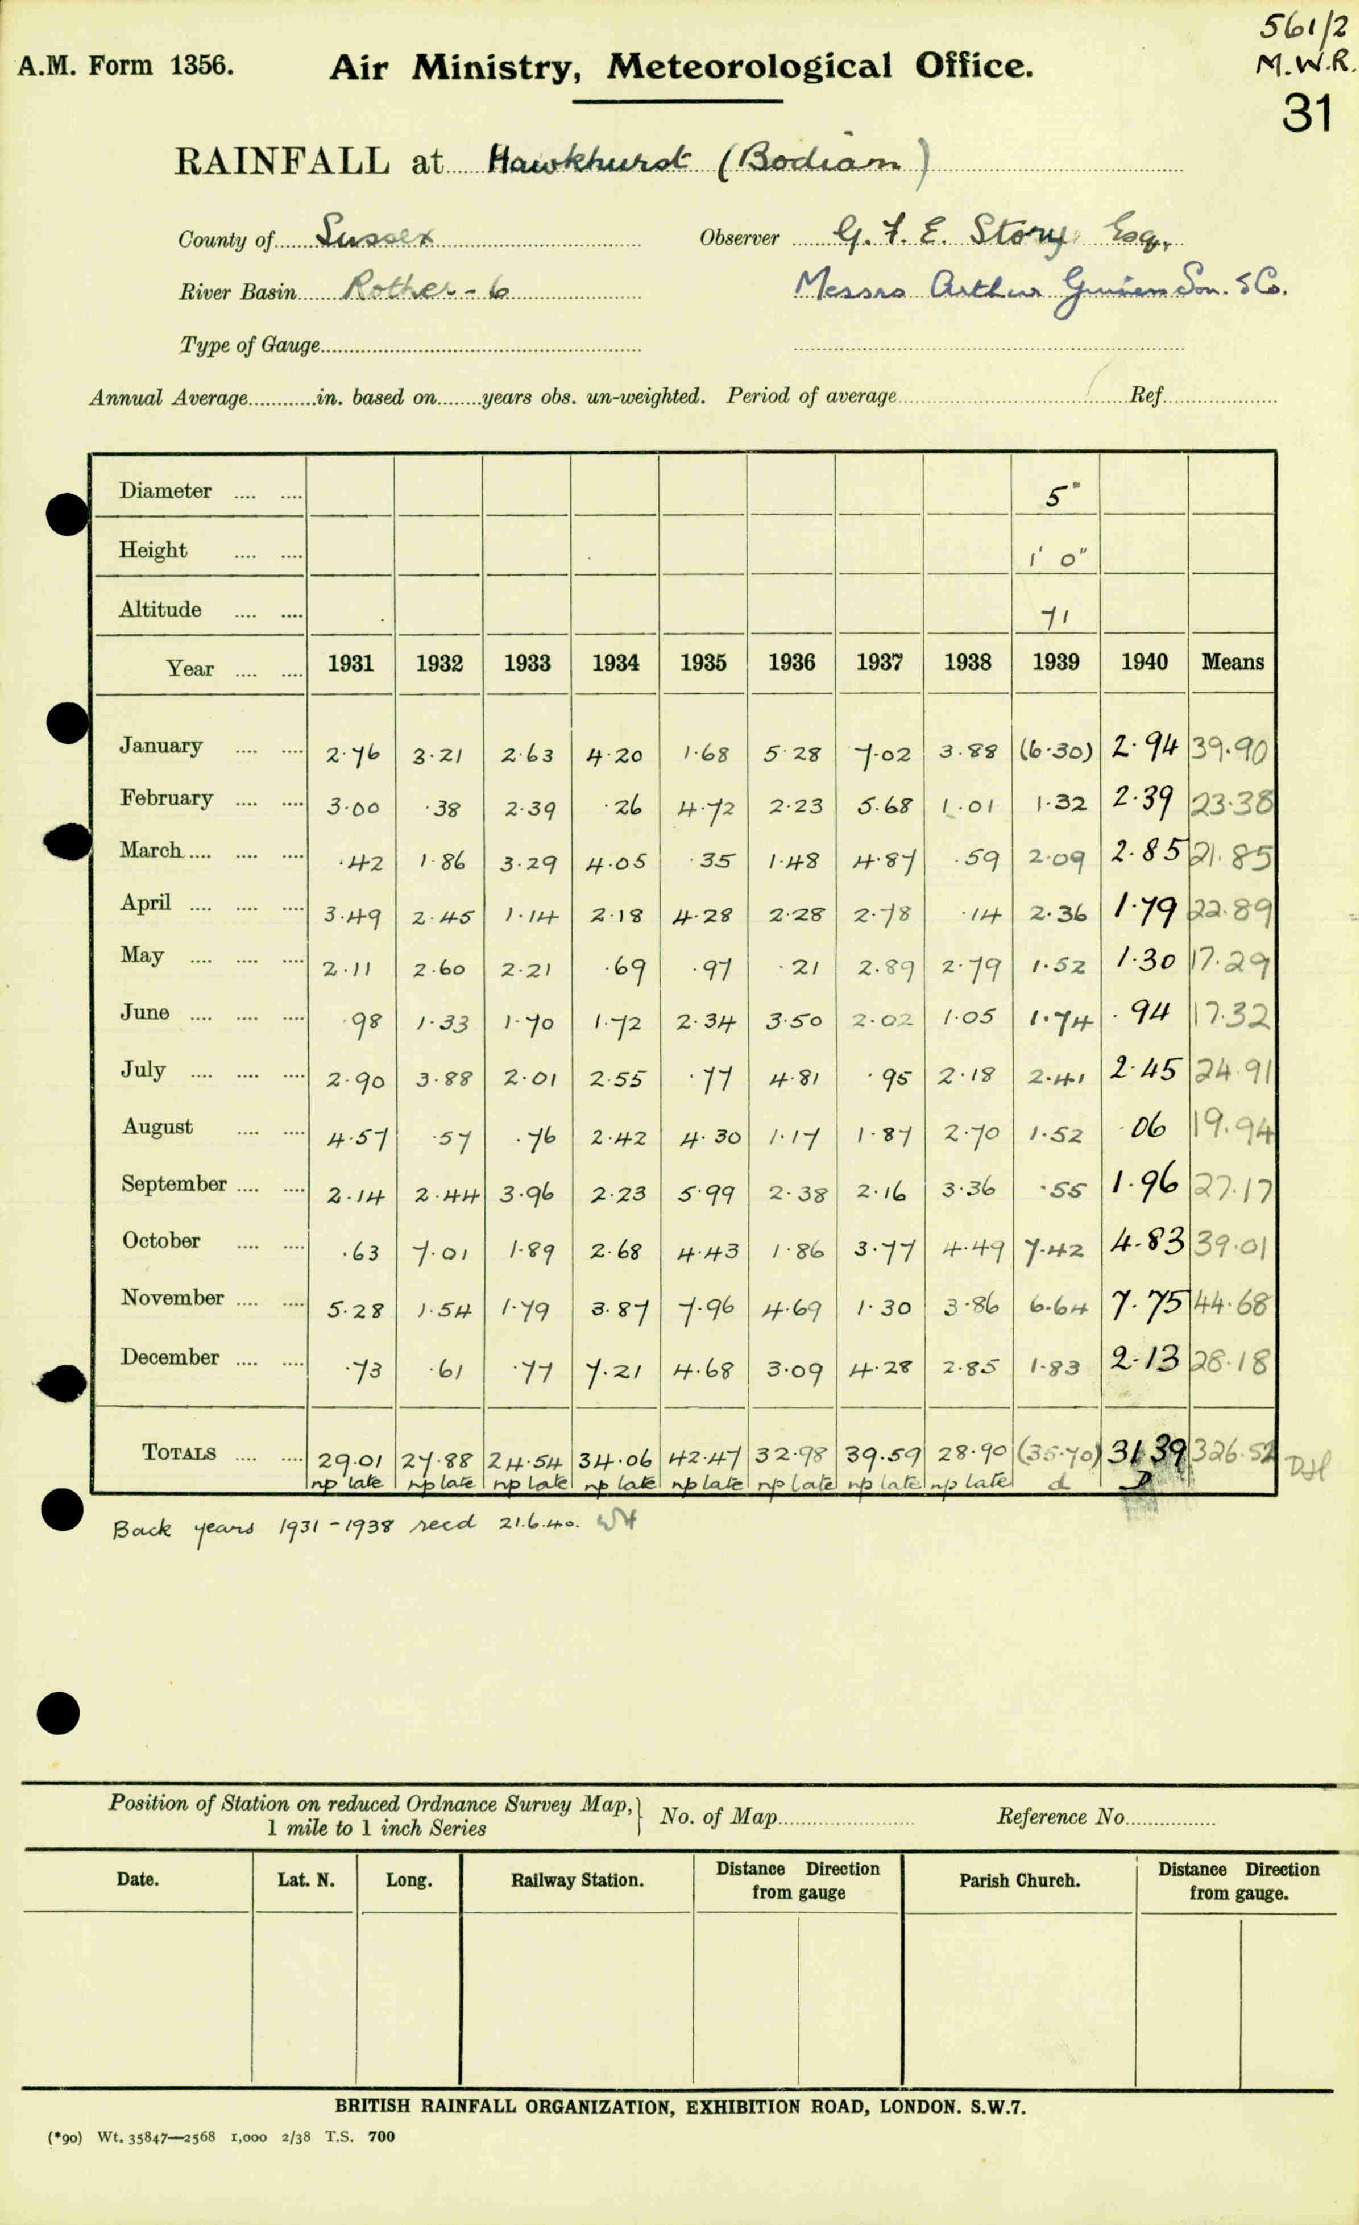 561/2
A.M. Form 1356. Air Ministry, Meteorological Office. M.W.R.
31
RAINFALL at Hawkhurst (Bodiam)
County of Sussex Observer G. F. E. Story Esq.
River Basin Rother - 6 Messrs Arthur Guiness Son. & Co.
Type of Gauge
Annual Average in. based on years obs. un-weighted. Period of average Ref.
Diameter 5"
Height 1' 0"
Altitude 71
Year 1931 1932 1933 1934 1935 1936 1937 1938 1939 1940 Means
January 2.76 3.21 2.63 4.20 1.68 5.28 7.02 3.88 (6.30) 2.94 39.90
February 3.00 .38 2.39 .26 4.72 2.23 5.68 1.01 1.32 2.39 23.38
March .42 1.86 3.29 4.05 .35 1.48 4.87 .59 2.09 2.85 21.85
April 3.49 2.45 1.14 2.18 4.28 2.28 2.78 .14 2.36 1.79 22.89
May 2.11 2.60 2.21 .69 .97 .21 2.89 2.79 1.52 1.30 17.29
June .98 1.33 1.70 1.72 2.34 3.50 2.02 1.05 1.74 .94 17.32
July 2.90 3.88 2.01 2.55 .77 4.81 .95 2.18 2.41 2.45 24.91
August 4.57 .57 .76 2.42 4.30 1.17 1.87 2.70 1.52 .06 19.94
September 2.14 2.44 3.96 2.23 5.99 2.38 2.16 3.36 .55 1.96 27.17
October .63 7.01 1.89 2.68 4.43 1.86 3.77 4.49 7.42 4.83 39.01
November 5.28 1.54 1.79 3.87 7.96 4.69 1.30 3.86 6.64 7.75 44.68
December .73 .61 .77 7.21 4.68 3.09 4.28 2.85 1.83 2.13 28.18
TOTALS 29.01 27.88 24.54 34.06 42.47 32.98 39.59 28.90 (35.70) 31.39 326.52 DH
np late np late np late np late np late np late np late np late d D
Back years 1931-1938 recd 21.6.40.
Position of Station on reduced Ordnance Survey Map,} No. of Map Reference No.
1 mile to 1 inch Series
Date. Lat. N. Long. Railway Station. Distance Direction from gauge Parish Church. Distance Direction from gauge.
BRITISH RAINFALL ORGANIZATION, EXHIBITION ROAD, LONDON. S.W.7.
(*90) Wt. 35847—2568 1,000 2/38 T.S. 700